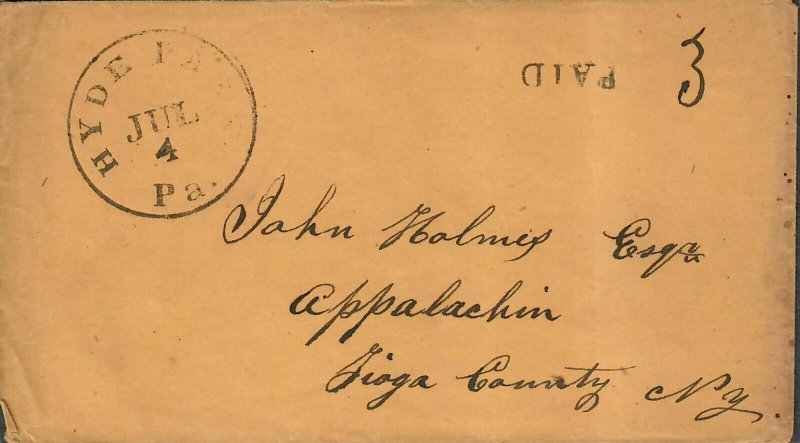 HYDE PARK
JUL
4
Pa.
PAID
3
John Holmes Esqr
Appalachin
Tioga County NY